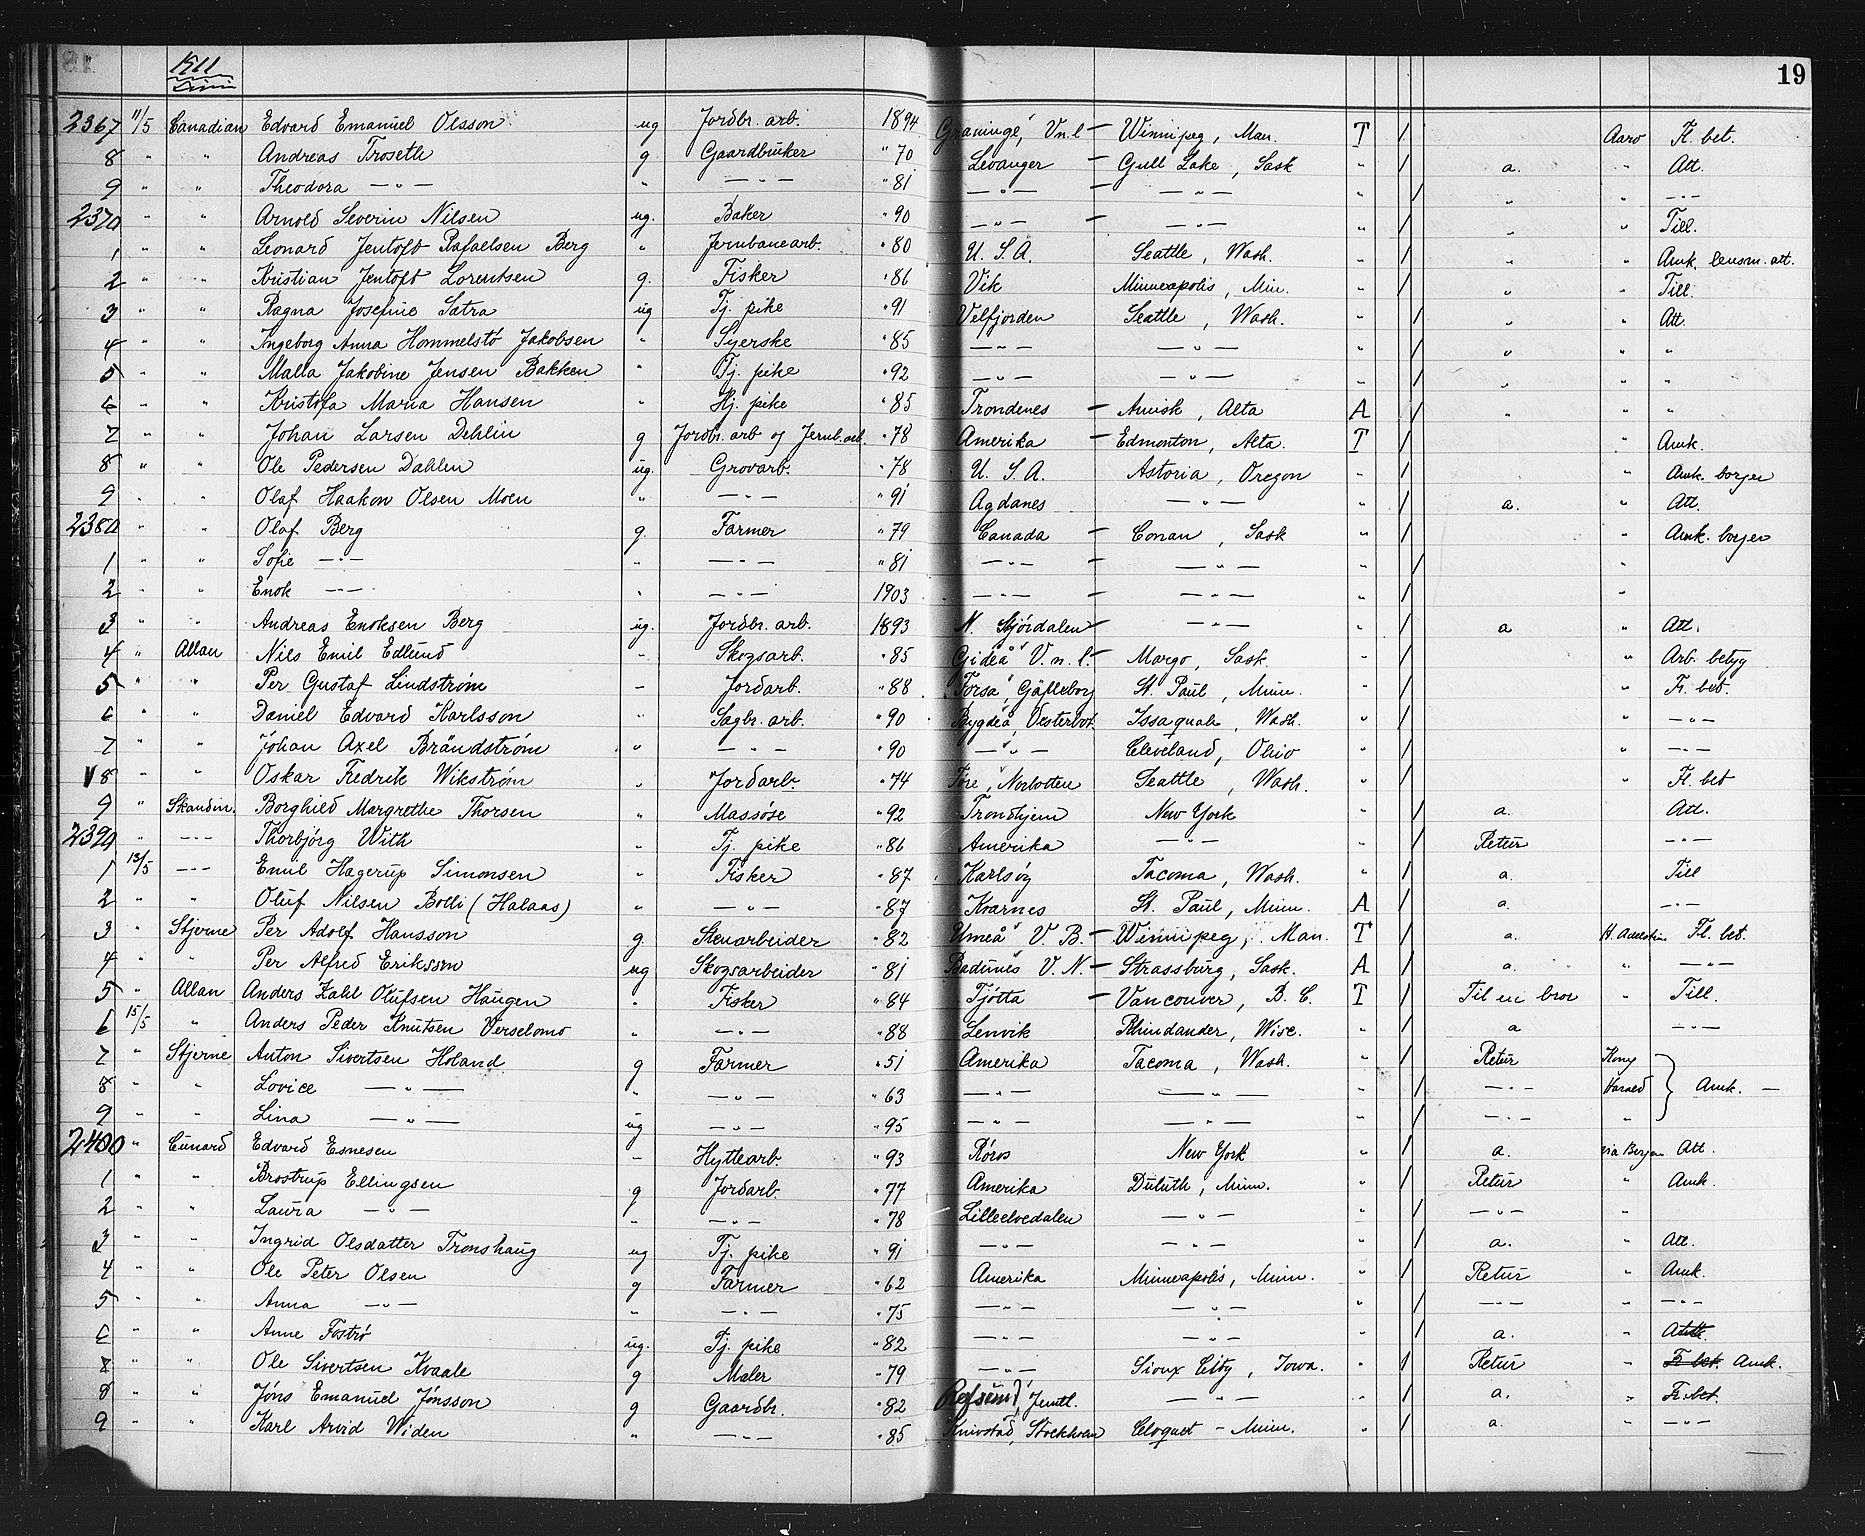 1911
19
2367 11/5 Canadian Edvard Emanuel Olsson ug Jordbr. arb. 1894 Graninge, Vn.l – Winnipeg, Man. T / Aaro Fl. bet.
8 " " Andreas Trosetle g Gaardbruker " 70 Levanger – Gull Lake, Sask " / a. " Att.
9 " " Theodora — " — " — " — " 81 — " — – — " — " / " " — " —
2370 " " Arnold Severin Nilsen ug. Baker " 90 — " — – — " — " / " " Till.
1 " " Leonard Jentoft Rafaelsen Berg " Jernbanearb. " 80 U. S. A. Seattle, Wash. " / " " Amk. lensm. att.
2 " " Kristian Jentoft Lorentsen g. Fisker " 86 Vik Minneapolis, Min. " / " " Till.
3 " " Ragna Josefine Satra ug Tj. pike " 91 Velfjorden Seattle, Wash. " / " " Att.
4 " " Ingeborg Anna Hommelstø Jakobsen " Syerske " 85 — " — — " — " / " " "
5 " " Malla Jakobine Jensen Bakken " Tj. pike " 92 — " — — " — " / " " "
6 " " Kristofa Maria Hansen " Hj. pike " 85 Trondenes – Amisk, Alta A / " " "
7 " " Johan Larsen Dehlin g Jordbr. arb og Jernb. arb. " 78 Amerika – Edmonton, Alta. T / " Amk.
8 " " Ole Pedersen Dahlen ug. Grovarb. " 78 U. S. A. Astoria, Oregon " / " Amk. borger
9 " " Olaf Haakon Olsen Moen " — " — " 91 Agdanes — " — " / a. " Att.
2380 " " Olaf Berg g. Farmer " 79 Canada – Conan, Sask " / " Amk. borger
1 " " Sofie — " — " — " — " 81 — " — – — " — " / "
2 " " Enok — " — " — " — 1903 — " — – — " — " / "
3 " " Andreas Enoksen Berg ug. Jordbr. arb. 1893 N. Stjørdalen – — " — " / a " Att.
4 " Allan Nils Emil Edlund " Skogsarb. " 85 Gideå V. n. l. – Margo, Sask. " / " Arb. betyg
5 " " Per Gustaf Lindstrøm – Jordarb. " 88 Forsa Gäfleborg St. Paul, Minn. " / " Fr. bet.
6 " " Daniel Edvard Karlsson " Sagbr. arb. " 90 Bygdeå, Vesterbot. Issaquah, Wash. " / " — " —
7 " " Johan Axel Brändstrøm " — " — " 90 — " — Cleveland, Ohio " / " — " —
V 8 " " Oskar Fredrik Wikstrøm " Jordarb. " 74 Töre, Norbotten Seattle, Wash. " / " Fl. bet
9 " Skandin. Borghild Margrethe Thorsen " Massøse " 92 Trondhjem New York " / a. Att.
2390 " — " — Thorbjørg With " Tj. pike " 86 Amerika — " — " / Retur — " —
1 13/5 — " — Emil Hagerup Simonsen " Fisker " 87 Karlsøy Tacoma, Wash. " / a. Till
2 " " Oluf Nilsen Bolli (Halaas) " — " — " 87 Kvarnes St. Paul, Minn. A / a. — " —
3 " Stjerne Per Adolf Hansson g. Stenarbeider " 82 Umeå V. B. – Winnipeg, Man. T / a. Fl. bet.
4 " " Per Alfred Eriksson ug Skogsarbeider " 81 V. N. – Strassburg, Sask. A / a. " — " —
5 " Allan Anders Kahl Olufsen Haugen " Fisker " 84 Tjøtta – Vancouver, B. C. T / Til en bror " Till.
6 15/5 " Anders Peder Knutsen Verselomo " — " — " 88 Lenvik Rhindander, Wisc. " / a — " —
7 " Stjerne Anton Sivertsen Holand g Farmer " 51 Amerika Tacoma, Wash. " / Retur Kong
8 " " Lovice — " — " — " — " 63 — " — — " — " / — " — Harald } Amk. –
9 " " Lina — " — ug — " — " 95 — " — — " — " / — " — "
2400 " Cunard Edvard Esnesen – Hyttearb. " 93 Røros New York " / a. via Bergen Att.
1 " " Brostrup Ellingsen g Jordarb " 77 Amerika Duluth, Minn. " / Retur " Amk.
2 " " Laura — " — " — " — " 78 Lilleelvedalen — " — " / — " — " "
3 " " Ingrid Olsdatter Tronshaug ug Tj. pike " 91 — " — — " — " / a. " Att.
4 " " Ole Peter Olsen g Farmer " 62 Amerika Minneapolis, Minn. " / Retur " Amk.
5 " " Anna — " — " — " — " 75 — " — — " — " / — " — " — " —
6 " " Anne Fostrø ug. Tj. pike " 82 — " — — " — " / a. "
8 " " Ole Sivertsen Kvaale g Maler " 79 — " — Sioux City, Iowa. " / Retur " Fr. bet. Amk.
8 " " Jöns Emanuel Jönsson g Gaardbr. " 82 Refsund, Jemtl. — " — " / a. " Fr. bet.
9 " " Karl Arvid Widen " — " — " 85 Knivstad, Stockholm Cloquet – Minn. " / a. " — " —